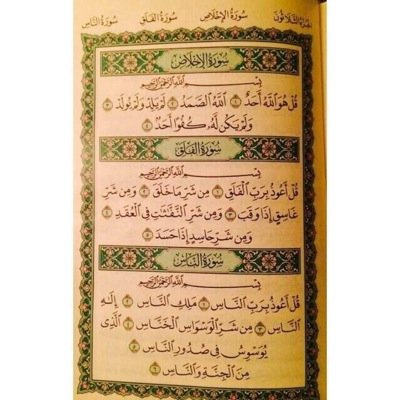 الجزء الثلاثون سورة الإخلاص سورة الفلق سورة الناس
سُورَةُ الإِخْلَاصِ
بِسْمِ اللَّهِ الرَّحْمَٰنِ الرَّحِيمِ
قُلْ هُوَ اللَّهُ أَحَدٌ ١ اللَّهُ الصَّمَدُ ٢ لَمْ يَلِدْ وَلَمْ يُولَدْ ٣
وَلَمْ يَكُن لَّهُ كُفُوًا أَحَدٌ ٤
سُورَةُ الفَلَقِ
بِسْمِ اللَّهِ الرَّحْمَٰنِ الرَّحِيمِ
قُلْ أَعُوذُ بِرَبِّ الْفَلَقِ ١ مِن شَرِّ مَا خَلَقَ ٢ وَمِن شَرِّ
غَاسِقٍ إِذَا وَقَبَ ٣ وَمِن شَرِّ النَّفَّٰثَٰتِ فِي الْعُقَدِ ٤
وَمِن شَرِّ حَاسِدٍ إِذَا حَسَدَ ٥
سُورَةُ النَّاسِ
بِسْمِ اللَّهِ الرَّحْمَٰنِ الرَّحِيمِ
قُلْ أَعُوذُ بِرَبِّ النَّاسِ ١ مَلِكِ النَّاسِ ٢ إِلَٰهِ
النَّاسِ ٣ مِن شَرِّ الْوَسْوَاسِ الْخَنَّاسِ ٤ الَّذِي
يُوَسْوِسُ فِي صُدُورِ النَّاسِ ٥
مِنَ الْجِنَّةِ وَالنَّاسِ ٦